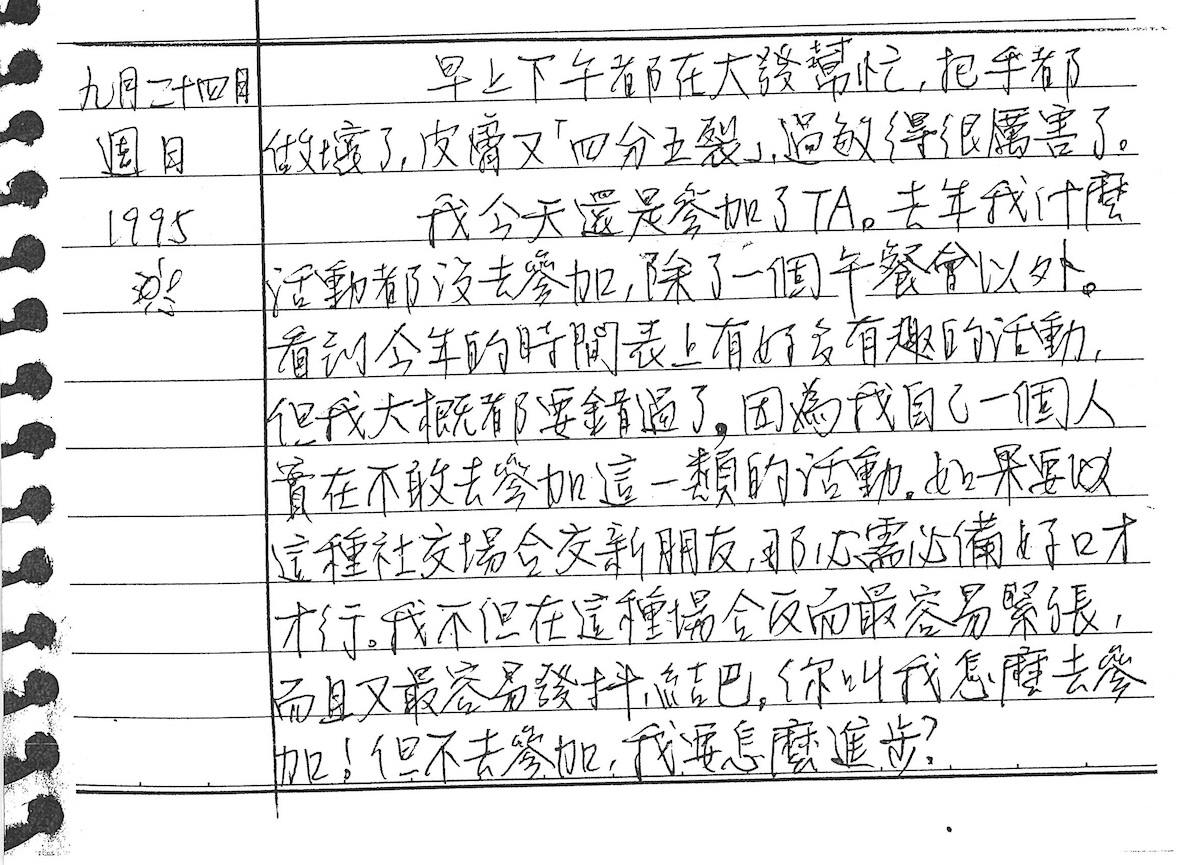 九月二十四日
週日
1995
早上下午都在大發幫忙,把手都
做壞了,皮膚又「四分五裂」,過敏得很厲害了。
我今天還是參加了TA。去年我什麼
活動都沒去參加,除了一個午餐會以外。
看到今年的時間表上有好多有趣的活動,
但我大概都要錯過了。因為我自己一個人
實在不敢去參加這一類的活動。如果要以
這種社交場合交新朋友,那必需必備好口才
才行。我不但在這種場合反而最容易緊張,
而且又最容易發抖,結巴。你叫我怎麼去參
加!但不去參加,我要怎麼進步?